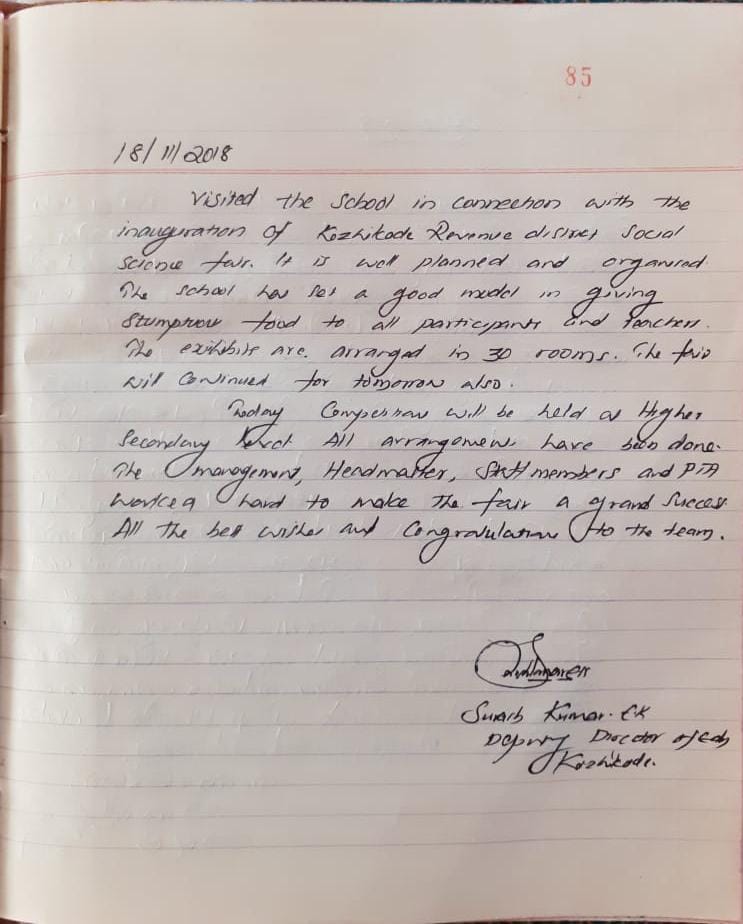 85
18/11/2018
Visited the School in connection with the
inauguration of Kozhikode Revenue district Social
Science fair. It is well planned and organised.
The school has set a good model in giving
food to all participants and teachers.
The exihibits are. arranged in 30 rooms. The fair
will continued for tomorrow also.
Today Competition will be held at Higher
Secondary level All arrangements have been done.
The management, Headmaster, Staff members and PTA
worked hard to make the fair a grand success.
All the best wishes and Congratulations to the team.
Kumar. EK
Deputy Director of Edn
Kozhikode.